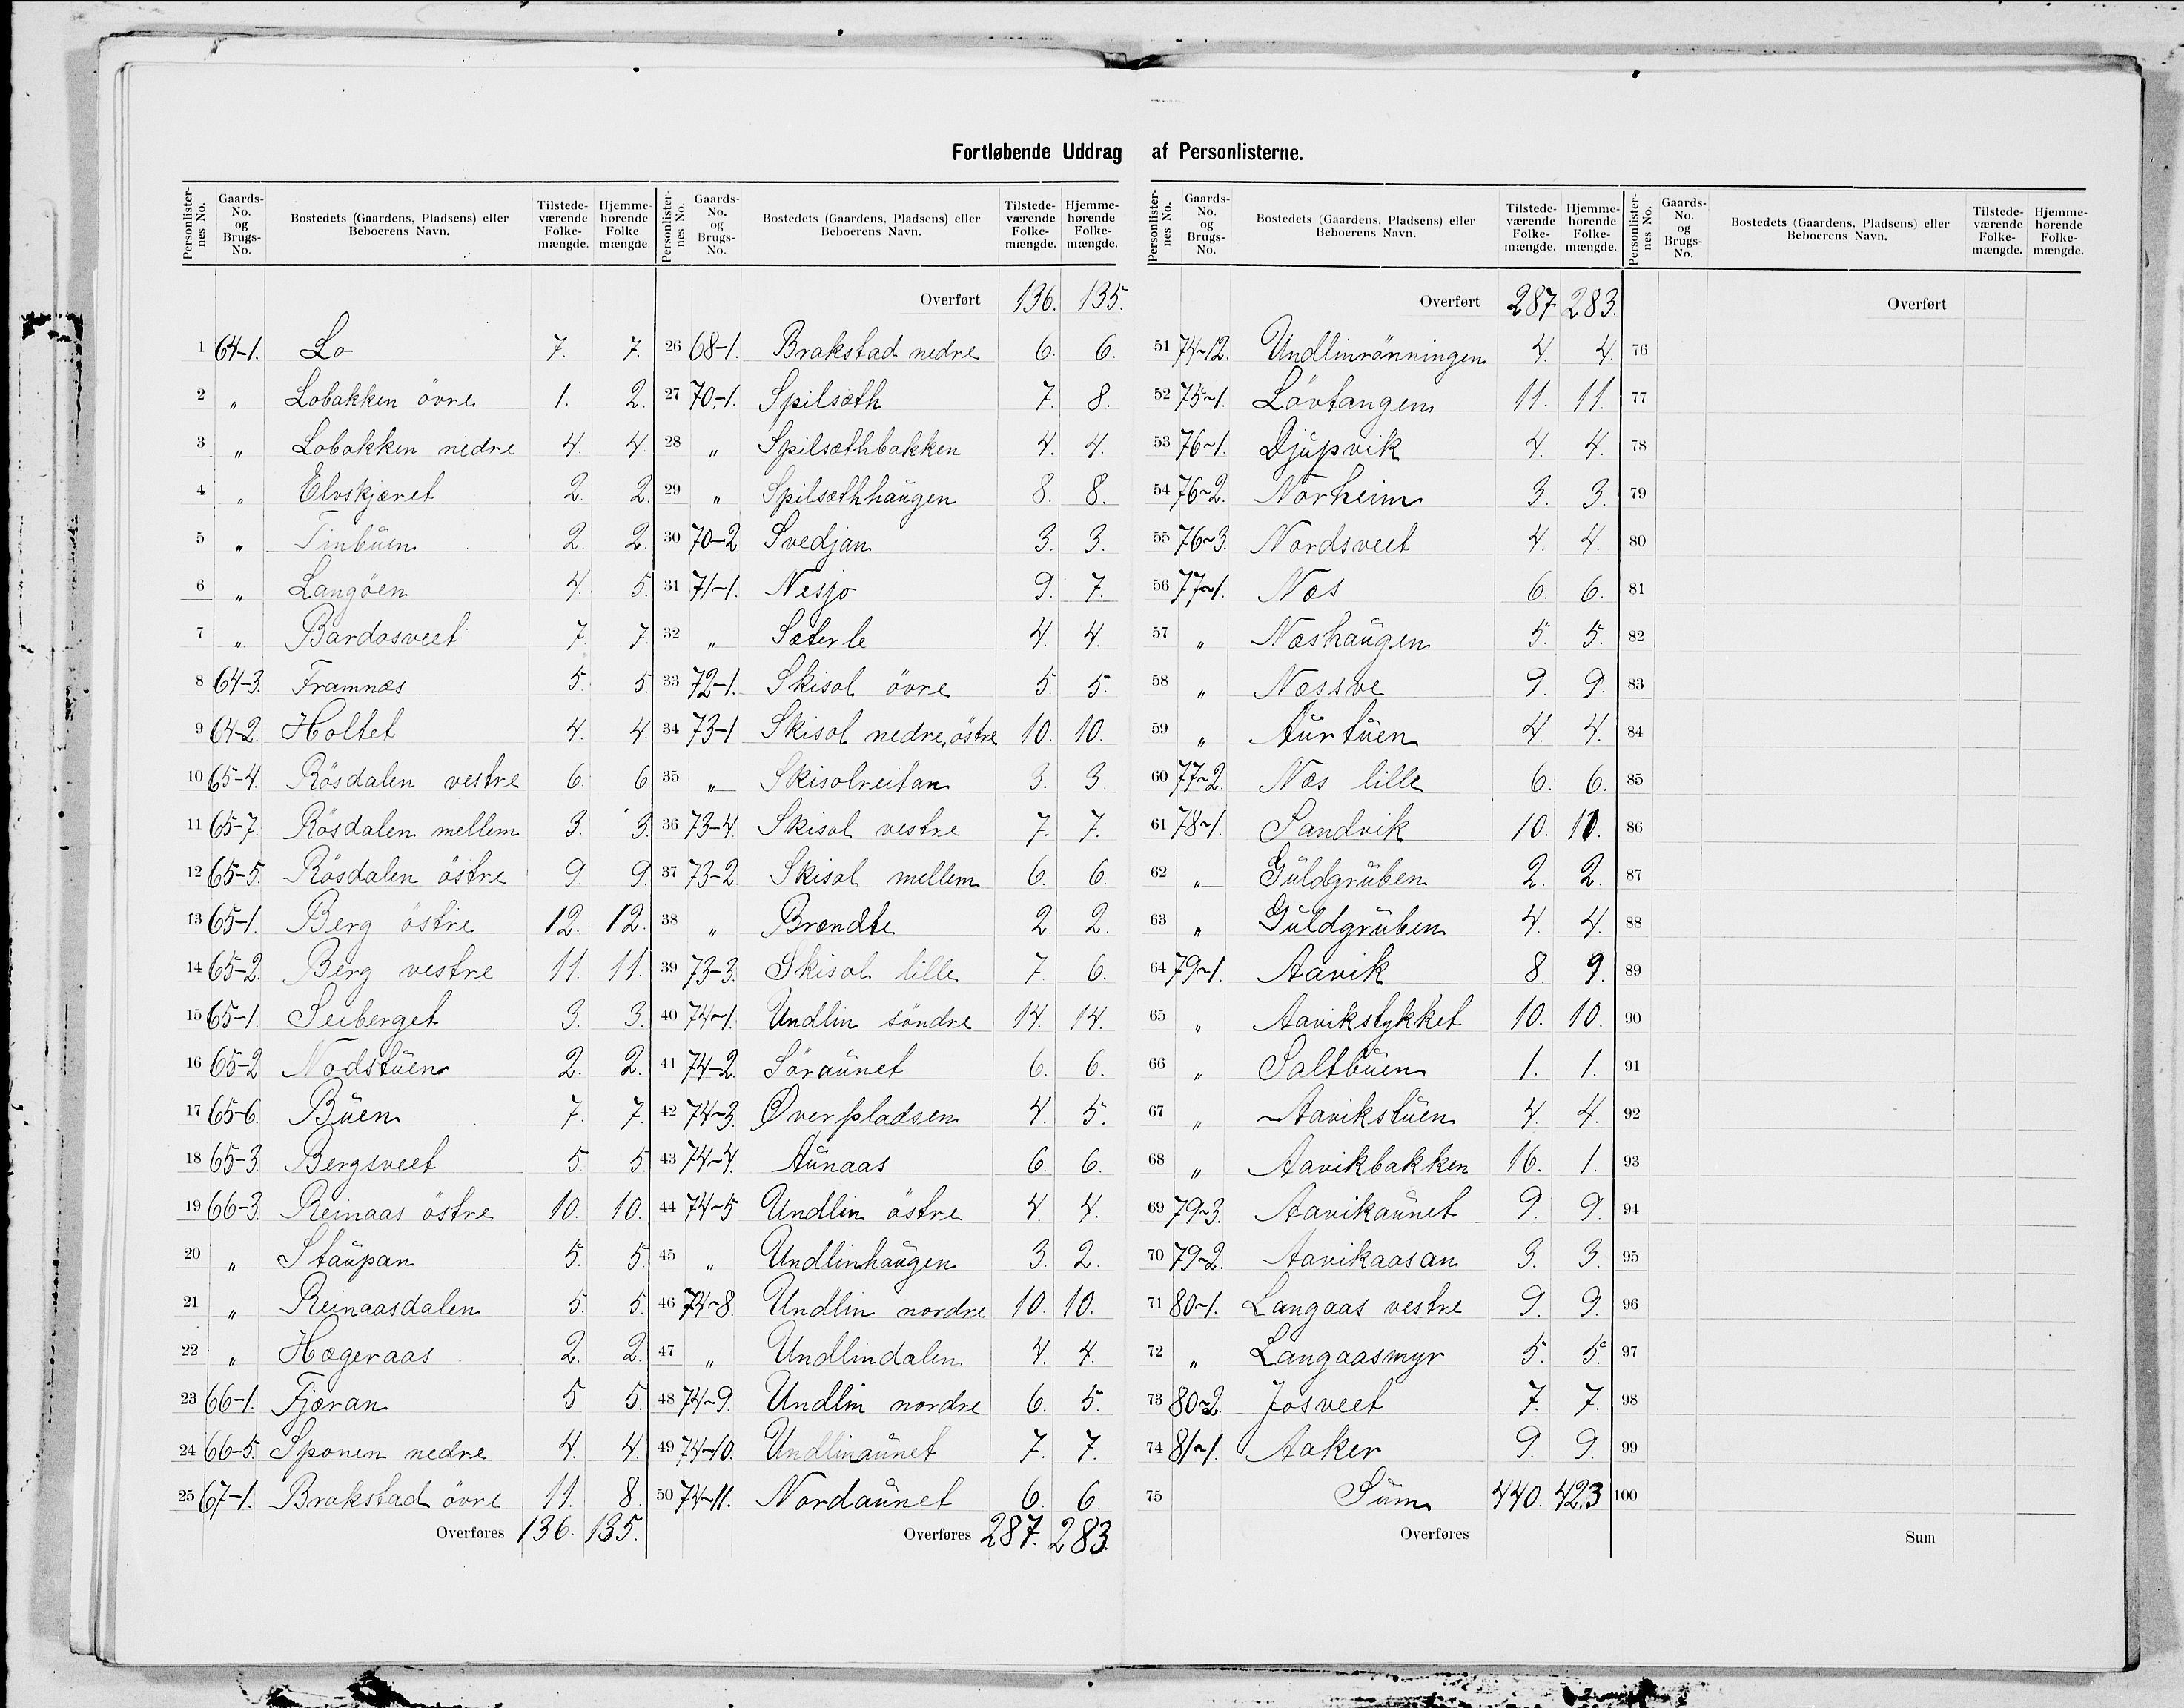 Fortløbende Uddrag af Personlisterne.
Personlisternes No. Gaards-No. og Brugs-No. Bostedets (Gaardens, Pladsens) eller Beboerens Navn. Tilstedeværende Folkemængde. Hjemmehørende Folke mængde.
1 64-1. Lo 7. 7.
2 „ Lobakken övre 1. 2.
3 „ Lobakken nedre 4. 4.
4 „ Elvskjæret 2. 2.
5 „ Tinbuen 2. 2.
6 „ Langöen 4. 5.
7 „ Bardosveet 7. 7.
8 64-3. Framnæs 5. 5.
9 64-2. Holtet 4. 4.
10 65-4. Rösdalen vestre 6. 6.
11 65-7. Rösdalen mellem 3. 3.
12 65-5. Rösdalen östre 9. 9.
13 65-1. Berg östre 12. 12.
14 65-2. Berg vestre 11. 11.
15 65-1. Seiberget 3. 3.
16 65-2 Nodstuen 2. 2.
17 65-6. Buen 7. 7.
18 65-3. Bergsveet 5 5.
19 66-3. Reinaas östre 10. 10.
20 „ Staupan 5. 5.
21 „ Reinaasdalen 5. 5.
22 „ Hægeraas 2. 2.
23 66-1. Fjæran 5 5.
24 66-5. Sponen nedre 4. 4.
25 67-1. Brakstad övre 11. 8.
Overføres 136. 135.
Personlisternes No. Gaards-No. og Brugs-No. Bostedets (Gaardens, Pladsens) eller Beboerens Navn. Tilstedeværende Folkemængde. Hjemmehørende Folkemængde.
Overført 136. 135.
26 68-1. Brakstad nedre 6. 6.
27 70-1. Spilsæth 7. 8.
28 „ Spilsæthbakken 4. 4.
29 „ Spilsæthhaugen 8. 8.
30 70-2 Svedjan 3. 3.
31 71-1. Nesjo 9. 7.
32 „ Sæterle 4. 4.
33 72-1. Skisol övre 5. 5.
34 73-1 Skisol nedre, östre 10. 10.
35 „ Skisolreitan 3. 3.
36 73-4. Skisol vestre 7. 7.
37 73-2. Skisol mellem 6. 6.
38 „ Brændte 2. 2.
39 73-3. Skisol lille 7. 6.
40 74-1. Undlin söndre 14. 14.
41 74-2. Söraunet 6. 6.
42 74-3. Øverpladsen 4. 5.
43 74-4. Aunaas 6. 6.
44 74-5 Undlin östre 4. 4.
45 „ Undlinhaugen 3. 2.
46 74-8. Undlin nordre 10. 10.
47 „ Undlindalen 4. 4.
48 74-9. Undlin nordre 6. 5.
49 74-10. Undlinaunet 7. 7.
50 74-11. Nordaunet 6. 6.
Overføres 287. 283.
Personlisternes No. Gaards-No. og Brugs-No. Bostedets (Gaardens, Pladsens) eller Beboerens Navn. Tilstedeværende Folkemængde. Hjemmehørende Folkemængde.
Overført 287 283.
51 74-12. Undlinrönningen 4. 4.
52 75-1. Lövtangen 11. 11.
53 76-1. Djupvik 4. 4.
54 76-2. Norheim 3. 3.
55 76-3. Nordsveet 4. 4.
56 77-1. Næs 6. 6.
57 „ Næshaugen 5. 5.
58 „ Næssve 9. 9.
59 „ Aurtuen 4. 4.
60 77-2. Næs lille 6. 6.
61 78-1. Sandvik 10. 10.
62 „ Guldgruben 2. 2.
63 „ Guldgruben 4. 4.
64 79-1. Aavik 8. 9.
65 „ Aavikstykket 10. 10.
66 „ Saltbuen 1. 1.
67 „ Aavikstuen 4. 4.
68 „ Aavikbakken 16. 1.
69 79-3. Aavikaunet 9. 9.
70 79-2. Aavikaasan 3. 3.
71 80-1. Langaas vestre 9. 9.
72 „ Langaasmyr 5. 5.
73 80-2. Josveet 7. 7.
74 81-1. Aaker 9. 9.
75 Sum 440. 423
Overføres
Personlisternes No. Gaards-No. og Brugs-No. Bostedets (Gaardens, Pladsens) eller Beboerens Navn. Tilstedeværende Folkemængde. Hjemmehørende Folkemængde.
Overført
76
77
78
79
80
81
82
83
84
85
86
87
88
89
90
91
92
93
94
95
96
97
98
99
100
Sum